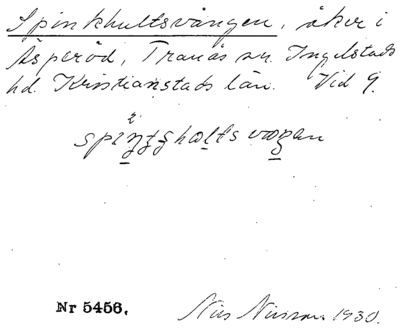 Spinkhultsvången, åker i
Äsperöd, Tranås sn. Ingelstads
hd. Kristianstads län. Vid 9.
Nr 5456, Nils Nilsson 1930.